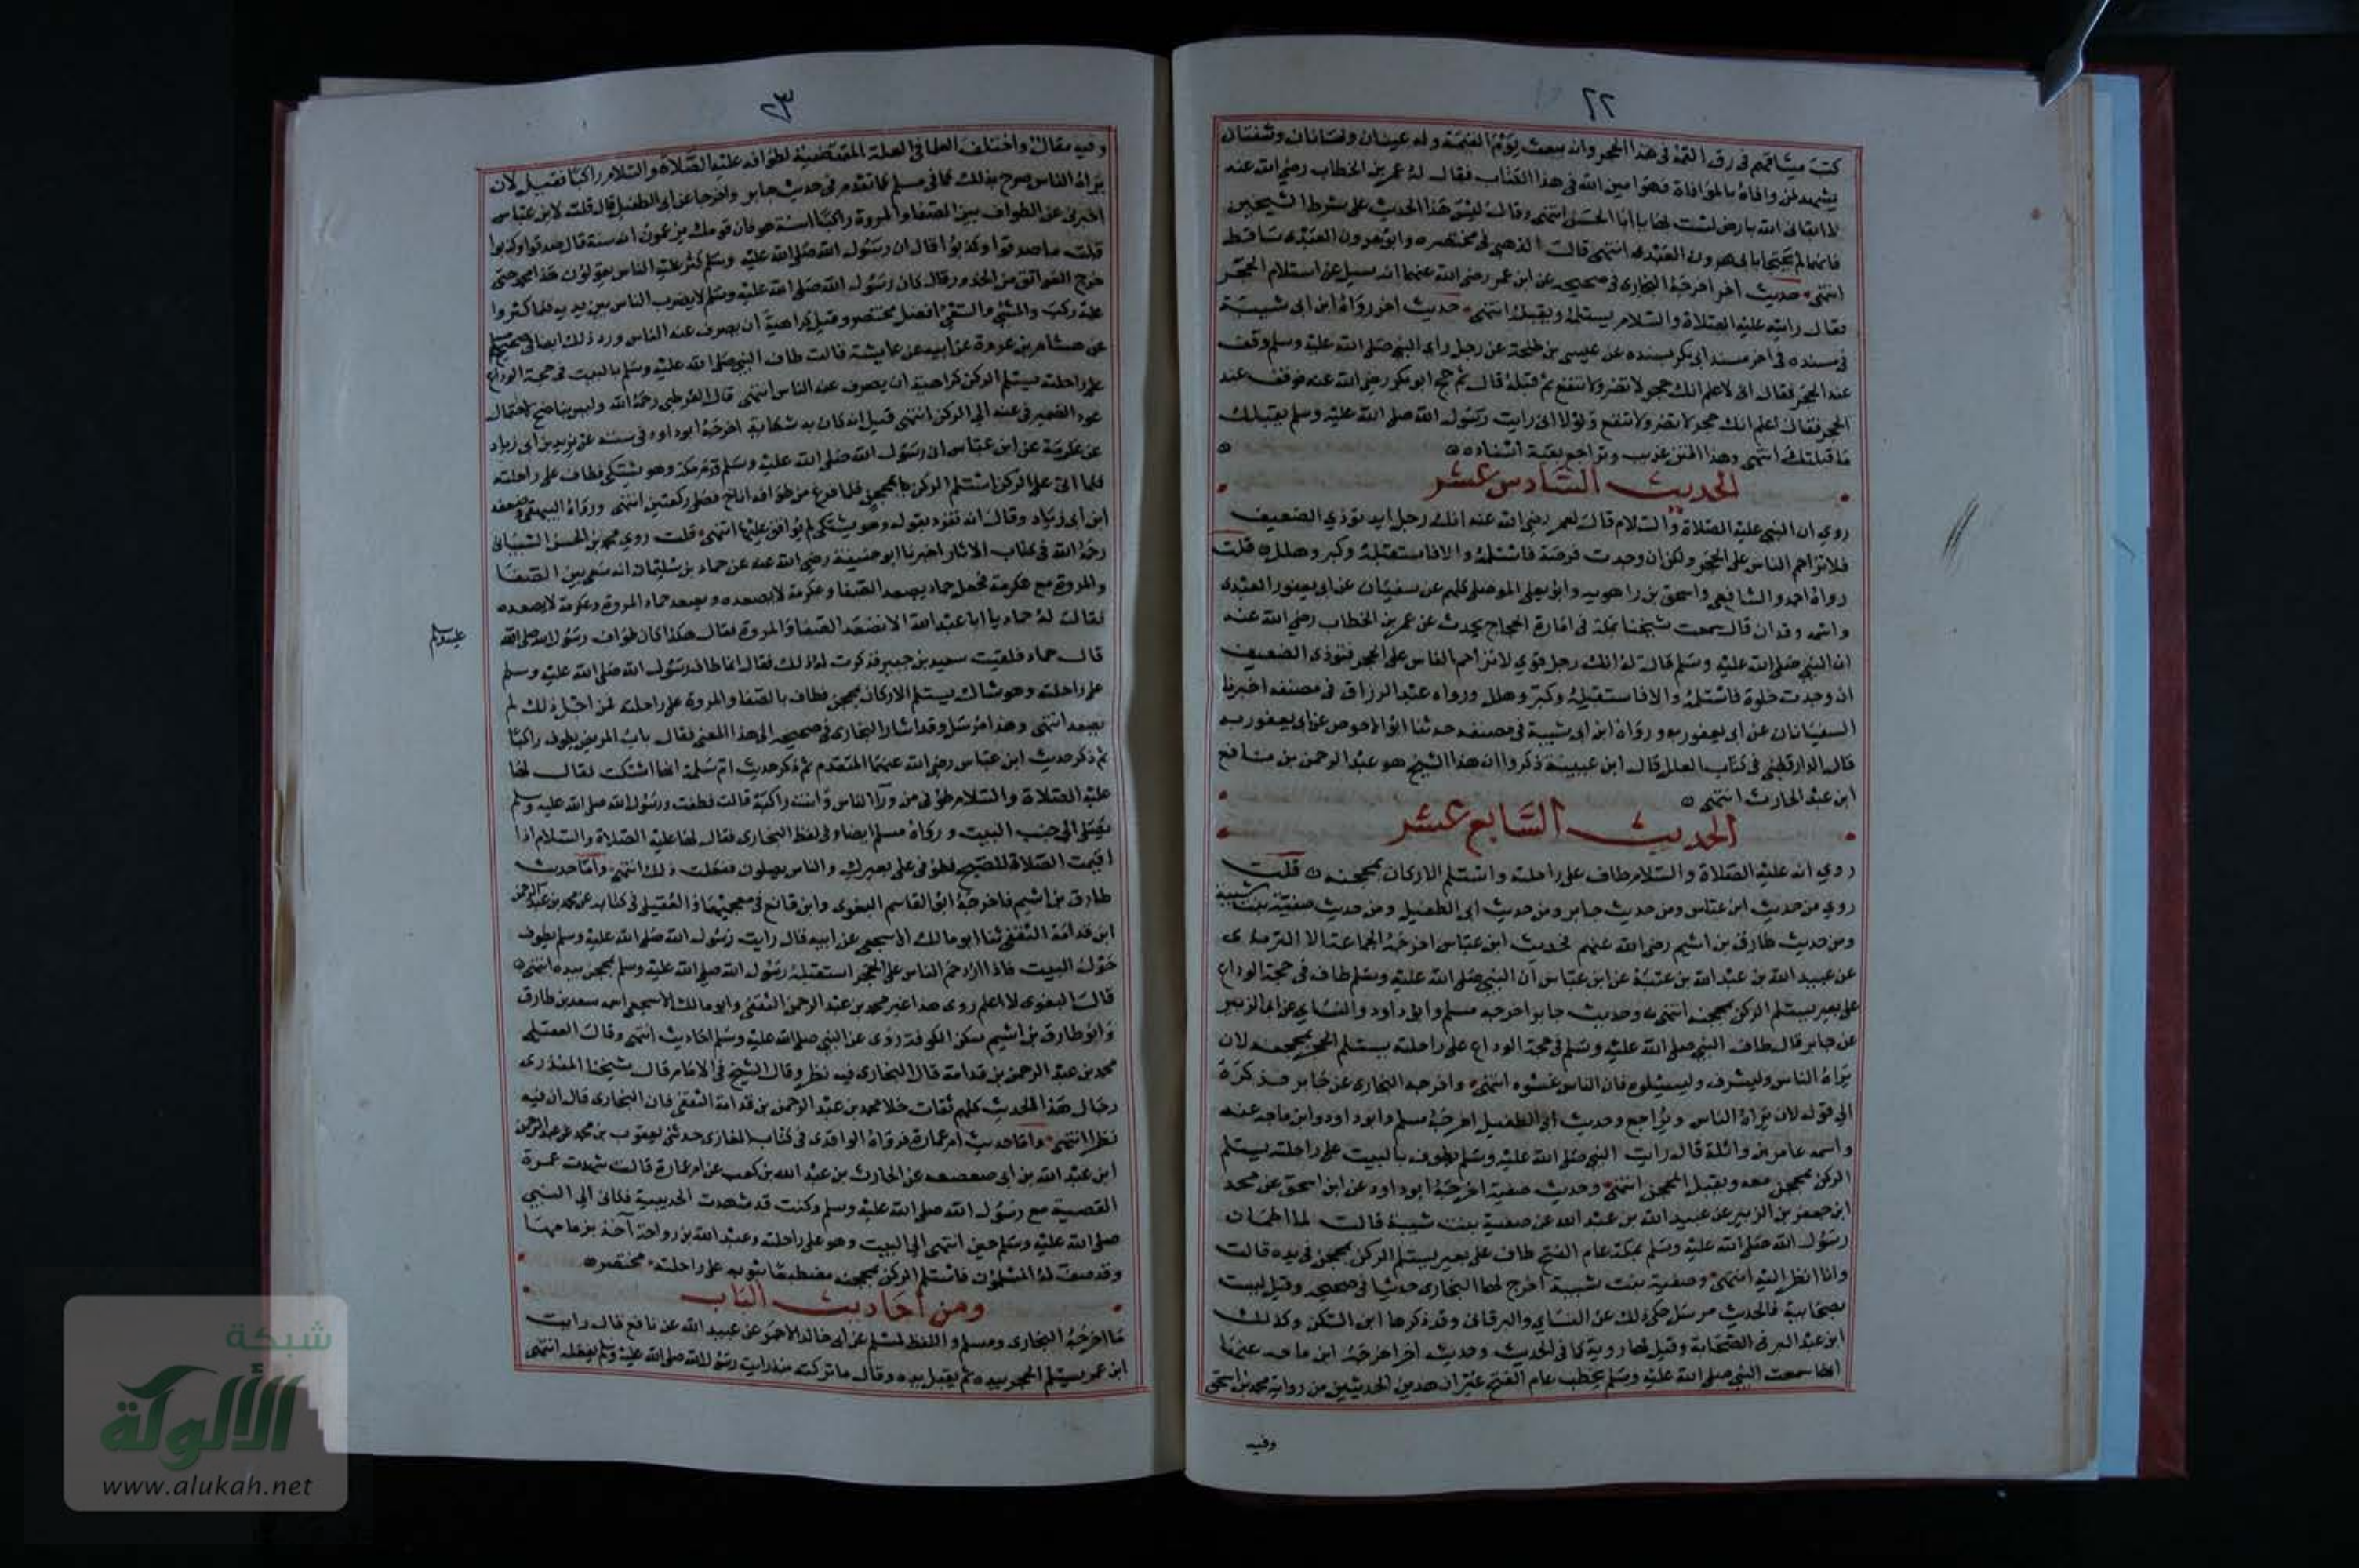 ٢٢
كتب ميثاقهم في رق التمه في هذا الحجر وانه يبعث يوم القيمة وله عينان ولسانان وشفتان
يشهد لمن وافاه بالموافاة فهو امين الله في هذا الكتاب فقال له عمر بن الخطاب رضي الله عنه
لا ابقاني الله بارض لست لها يا ابا الحسن انتهى وقال ليس هذا الحديث على شرط الشيخين
فانهما لم يحتجا بابي هرون العبدي انتهى قال الذهبي في مختصره وابو هرون العبدي ساقط
انتهى حديث اخر اخرجه البخاري في صحيحه عن ابن عمر رضي الله عنهما انه سيل عن استلام الحجر
فقال رايته عليه الصلاة والسلام يستلمه ويقبله انتهى حديث اخر رواه ابن ابي شيبة
في مسنده في اخر مسند ابي بكر بسنده عن عيسى بن طلحة عن رجل راى النبي صلى الله عليه وسلم وقف
عند الحجر فقال اني لاعلم انك حجر لا تضر ولا تنفع ثم قبله قال ثم حج ابو بكر رضي الله عنه فوقف عند
الحجر فقال اعلم انك حجر لا تضر ولا تنفع ولولا اني رايت رسول الله صلى الله عليه وسلم يقبلك
ما قبلتك انتهى وهذا المتن غريب وتراجع بقية اسناده
الحديث السادس عشر
روي ان النبي عليه الصلاة والسلام قال لعمر رضي الله عنه انك رجل ايد توذي الضعيف
فلا تزاحم الناس على الحجر ولكن ان وجدت فرصة فاستلمه والا فاستقبله وكبر وهلل قلت
رواه احمد والشافعي واسحق بن راهويه وابو يعلى الموصلي كلهم عن سفيان عن ابي يعفور العبدي
واسمه وقدان قال سمعت شيخنا بمكة في امارة الحجاج يحدث عن عمر بن الخطاب رضي الله عنه
ان النبي صلى الله عليه وسلم قال له انك رجل قوي لا تزاحم الناس على الحجر فتوذي الضعيف
ان وجدت خلوة فاستلمه والا فاستقبله وكبر وهلل ورواه عبد الرزاق في مصنفه اخبرنا
السفيانان عن ابي يعفور به ورواه ابن ابي شيبة في مصنفه حدثنا ابو الاحوص عن ابي يعفور به
قال الدارقطني في كتاب العلل قال ابن عيينة ذكروا ان هذا الشيخ هو عبد الرحمن بن نافع
ابن عبد الحارث انتهى
الحديث السابع عشر
روي انه عليه الصلاة والسلام طاف على راحلته واستلم الاركان بمحجنه قلت
روي من حديث ابن عباس ومن حديث جابر ومن حديث ابي الطفيل ومن حديث صفية بنت شيبة
ومن حديث طارق بن اشيم رضي الله عنهم فحديث ابن عباس اخرجه الجماعة الا الترمذي
عن عبيد الله بن عبد الله بن عتبة عن ابن عباس ان النبي صلى الله عليه وسلم طاف في حجة الوداع
على بعير يستلم الركن بمحجنه انتهى وحديث جابر اخرجه مسلم وابي داود والنساي عن ابي الزبير
عن جابر قال طاف النبي صلى الله عليه وسلم في حجة الوداع على راحلته يستلم الحجر بمحجنه لان
يراه الناس وليشرف وليسيلوه فان الناس غشوه انتهى واخرجه البخاري عن جابر فذكره
الى قوله لان يراه الناس ويراجع وحديث ابي الطفيل اخرجه مسلم وابو داود وابن ماجه عنه
واسمه عامر بن واثلة قال رايت النبي صلى الله عليه وسلم يطوف بالبيت على راحلته يستلم
الركن بمحجن معه ويقبل المحجن انتهى وحديث صفية اخرجه ابو داود عن ابن اسحق عن محمد
ابن جعفر بن الزبير عن عبيد الله بن عبد الله عن صفية بنت شيبة قالت لما اطمان
رسول الله صلى الله عليه وسلم بمكة عام الفتح طاف على بعير يستلم الركن بمحجن في يده قالت
وانا انظر اليه انتهى وصفية بنت شيبة اخرج لها البخاري حديثا في صحيحه وقيل ليست
بصحابية فالحديث مرسل حكي ذلك عن النساي والبرقاني وقد ذكرها ابن السكن وكذلك
ابن عبد البر في الصحابة وقيل لها روية كما في الحديث وحديث اخر اخرجه ابن ماجه عنها
انها سمعت النبي صلى الله عليه وسلم يخطب عام الفتح غير ان هذين الحديثين من رواية محمد بن اسحق
وفيه
٢٣
وفيه مقال واختلف العلما في العلة المقتضية لطوافه عليه الصلاة والسلام راكبا فقيل لان
يراه الناس صرح بذلك كما في مسلم كما تقدم في حديث جابر واخرجا عن ابي الطفيل قال قلت لابن عباس
اخبرني عن الطواف بين الصفا والمروة راكبا اسنة هو فان قومك يزعمون انه سنة قال صدقوا وكذبوا
قلت ما صدقوا وكذبوا قال ان رسول الله صلى الله عليه وسلم كثر عليه الناس يقولون هذا محمد حتى
خرج العواتق من الخدور قال كان رسول الله صلى الله عليه وسلم لا يضرب الناس بين يديه فلما كثروا
عليه ركب والمشي والسعي افضل مختصر وقيل كراهية ان يصرف عنه الناس ورد ذلك ايضا في صحيح مسلم
عن هشام بن عروة عن ابيه عن عايشة قالت طاف النبي صلى الله عليه وسلم بالبيت في حجة الوداع
على راحلته يستلم الركن كراهية ان يصرف عنه الناس انتهى قال القرطبي رحمه الله وليس بناصح لاحتمال
عود الضمير في عنه الى الركن انتهى قيل انه كان به شكاية اخرجه ابو داود في سننه عن يزيد بن ابي زياد
عن عكرمة عن ابن عباس ان رسول الله صلى الله عليه وسلم قدم مكة وهو يشتكي فطاف على راحلته
فلما اتى على الركن استلم الركن بمحجن فلما فرغ من طوافه اناخ فصلى ركعتين انتهى ورواه البيهقي وضعفه
ابن ابي زياد وقال انه تفرد بقوله وهو يشتكي لم يوافق عليها انتهى قلت روي محمد بن الحسن الشيباني
رحمه الله في كتاب الاثار اخبرنا ابو حنيفة رضي الله عنه عن حماد بن سليمان انه سعى بين الصفا
والمروة مع عكرمة فجعل حماد يصعد الصفا وعكرمة لا يصعده ويصعد حماد المروة وعكرمة لا يصعده
فقال له حماد يا ابا عبد الله الا تصعد الصفا والمروة فقال هكذا كان طواف رسول الله صلى الله
عليه وسلم
قال حماد فلقيت سعيد بن جبير فذكرت له ذلك فقال انما طاف رسول الله صلى الله عليه وسلم
على راحلته وهو شاك يستلم الاركان بمحجن فطاف بالصفا والمروة على راحلته فمن اجل ذلك لم
يصعد انتهى وهذا مرسل وقد اشار البخاري في صحيحه الى هذا المعنى فقال باب المريض يطوف راكبا
ثم ذكر حديث ابن عباس رضي الله عنهما المتقدم ثم ذكر حديث ام سلمة انها اشتكت فقال لها
عليه الصلاة والسلام طوفي من ورآ الناس وانت راكبة قالت فطفت ورسول الله صلى الله عليه وسلم
يصلي الى جنب البيت ورواه مسلم ايضا وفي لفظ البخاري فقال لها عليه الصلاة والسلام اذا
اقيمت الصلاة للصبح فطوفي على بعيرك والناس يصلون ففعلت ذلك انتهى واما حديث
طارق بن اشيم فاخرجه ابو القاسم البغوي وابن قانع في معجميهما والعقيلي في كتابه عن محمد بن عبد الرحمن
ابن قدامة الثقفي ثنا ابو مالك الاشجعي عن ابيه قال رايت رسول الله صلى الله عليه وسلم يطوف
حول البيت فاذا ازدحم الناس على الحجر استقبله رسول الله صلى الله عليه وسلم بمحجن بيده انتهى
قال البغوي لا اعلم روى هذا غير محمد بن عبد الرحمن الثقفي وابو مالك الاشجعي اسمه سعد بن طارق
وابو طارق بن اشيم سكن الكوفة روى عن النبي صلى الله عليه وسلم احاديث انتهى وقال العقيلي
محمد بن عبد الرحمن بن قدامة قال البخاري فيه نظر وقال الشيخ في الامام قال شيخنا المنذري
رجال هذا الحديث كلهم ثقات خلا محمد بن عبد الرحمن بن قدامة الثقفي فان البخاري قال ان فيه
نظرا انتهى واما حديث ام عمارة فرواه الواقدي في كتاب المغازي حدثني يعقوب بن محمد بن عبد الرحمن
ابن عبد الله بن ابي صعصعه عن الحارث بن عبد الله بن كعب عن ام عمارة قالت شهدت عمرة
القضية مع رسول الله صلى الله عليه وسلم وكنت قد شهدت الحديبية فكاني الى النبي
صلى الله عليه وسلم حين انتهى الى البيت وهو على راحلته وعبد الله بن رواحة آخذ بزمامها
وقد صف له المسلمون فاستلم الركن بمحجنه مضطبعا بثوبه على راحلته مختصر
ومن أحاديث الباب
ما اخرجه البخاري ومسلم واللفظ لمسلم عن ابي خالد الاحمر عن عبيد الله عن نافع قال رايت
ابن عمر يستلم الحجر بيده ثم يقبل يده وقال ما تركته منذ رايت رسول الله صلى الله عليه وسلم يفعله انتهى
شبكة
الألوكة
www.alukah.net